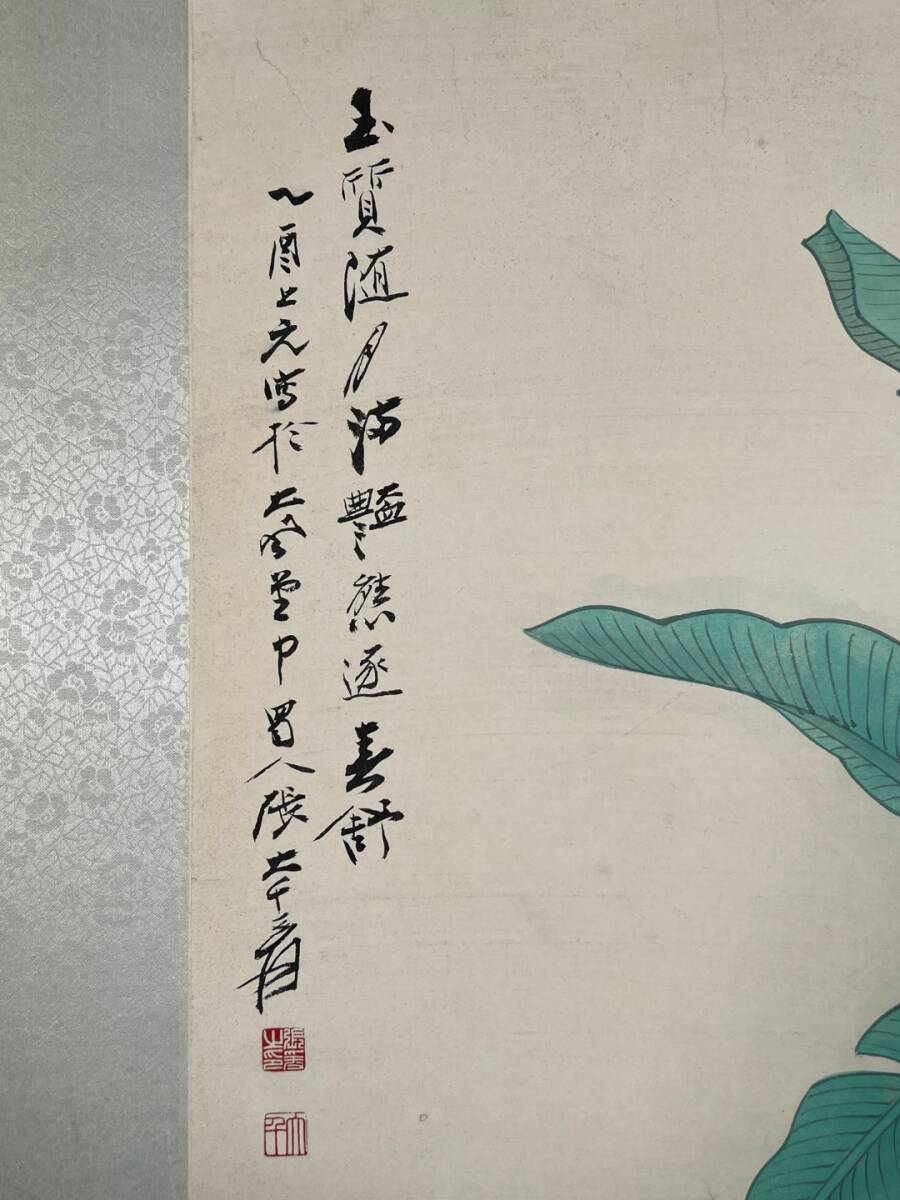 玉質随月滿艷態逐春舒
乙酉上元寫於大風堂中蜀人張大千爰
張爰之印
大千